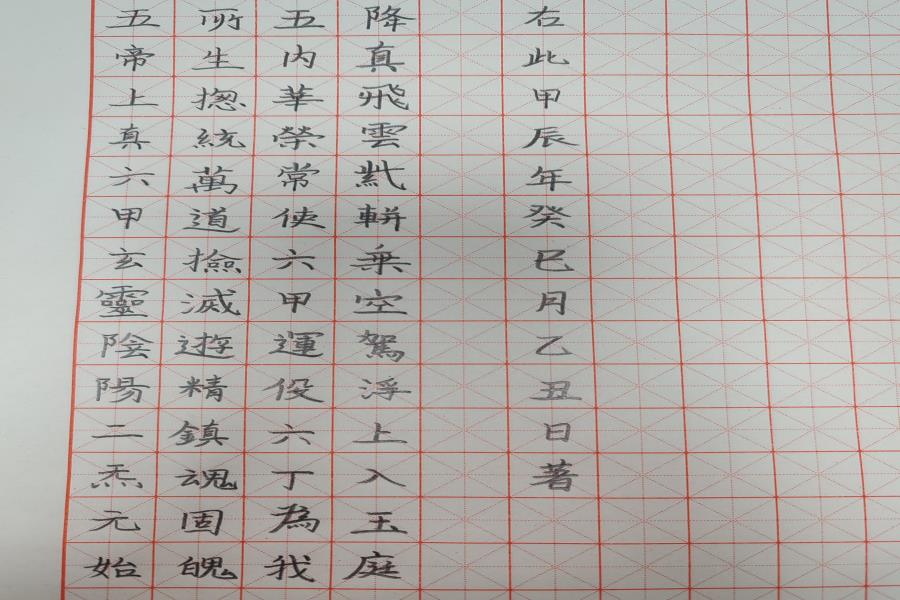 五帝上真六甲玄靈陰陽二炁元始
所生揔統萬道撿滅遊精鎮魂固魄
五内華榮常使六甲運伇六丁為我
降真飛雲紫軿乗空駕浮上入玉庭
右此甲辰年癸巳月乙丑日著